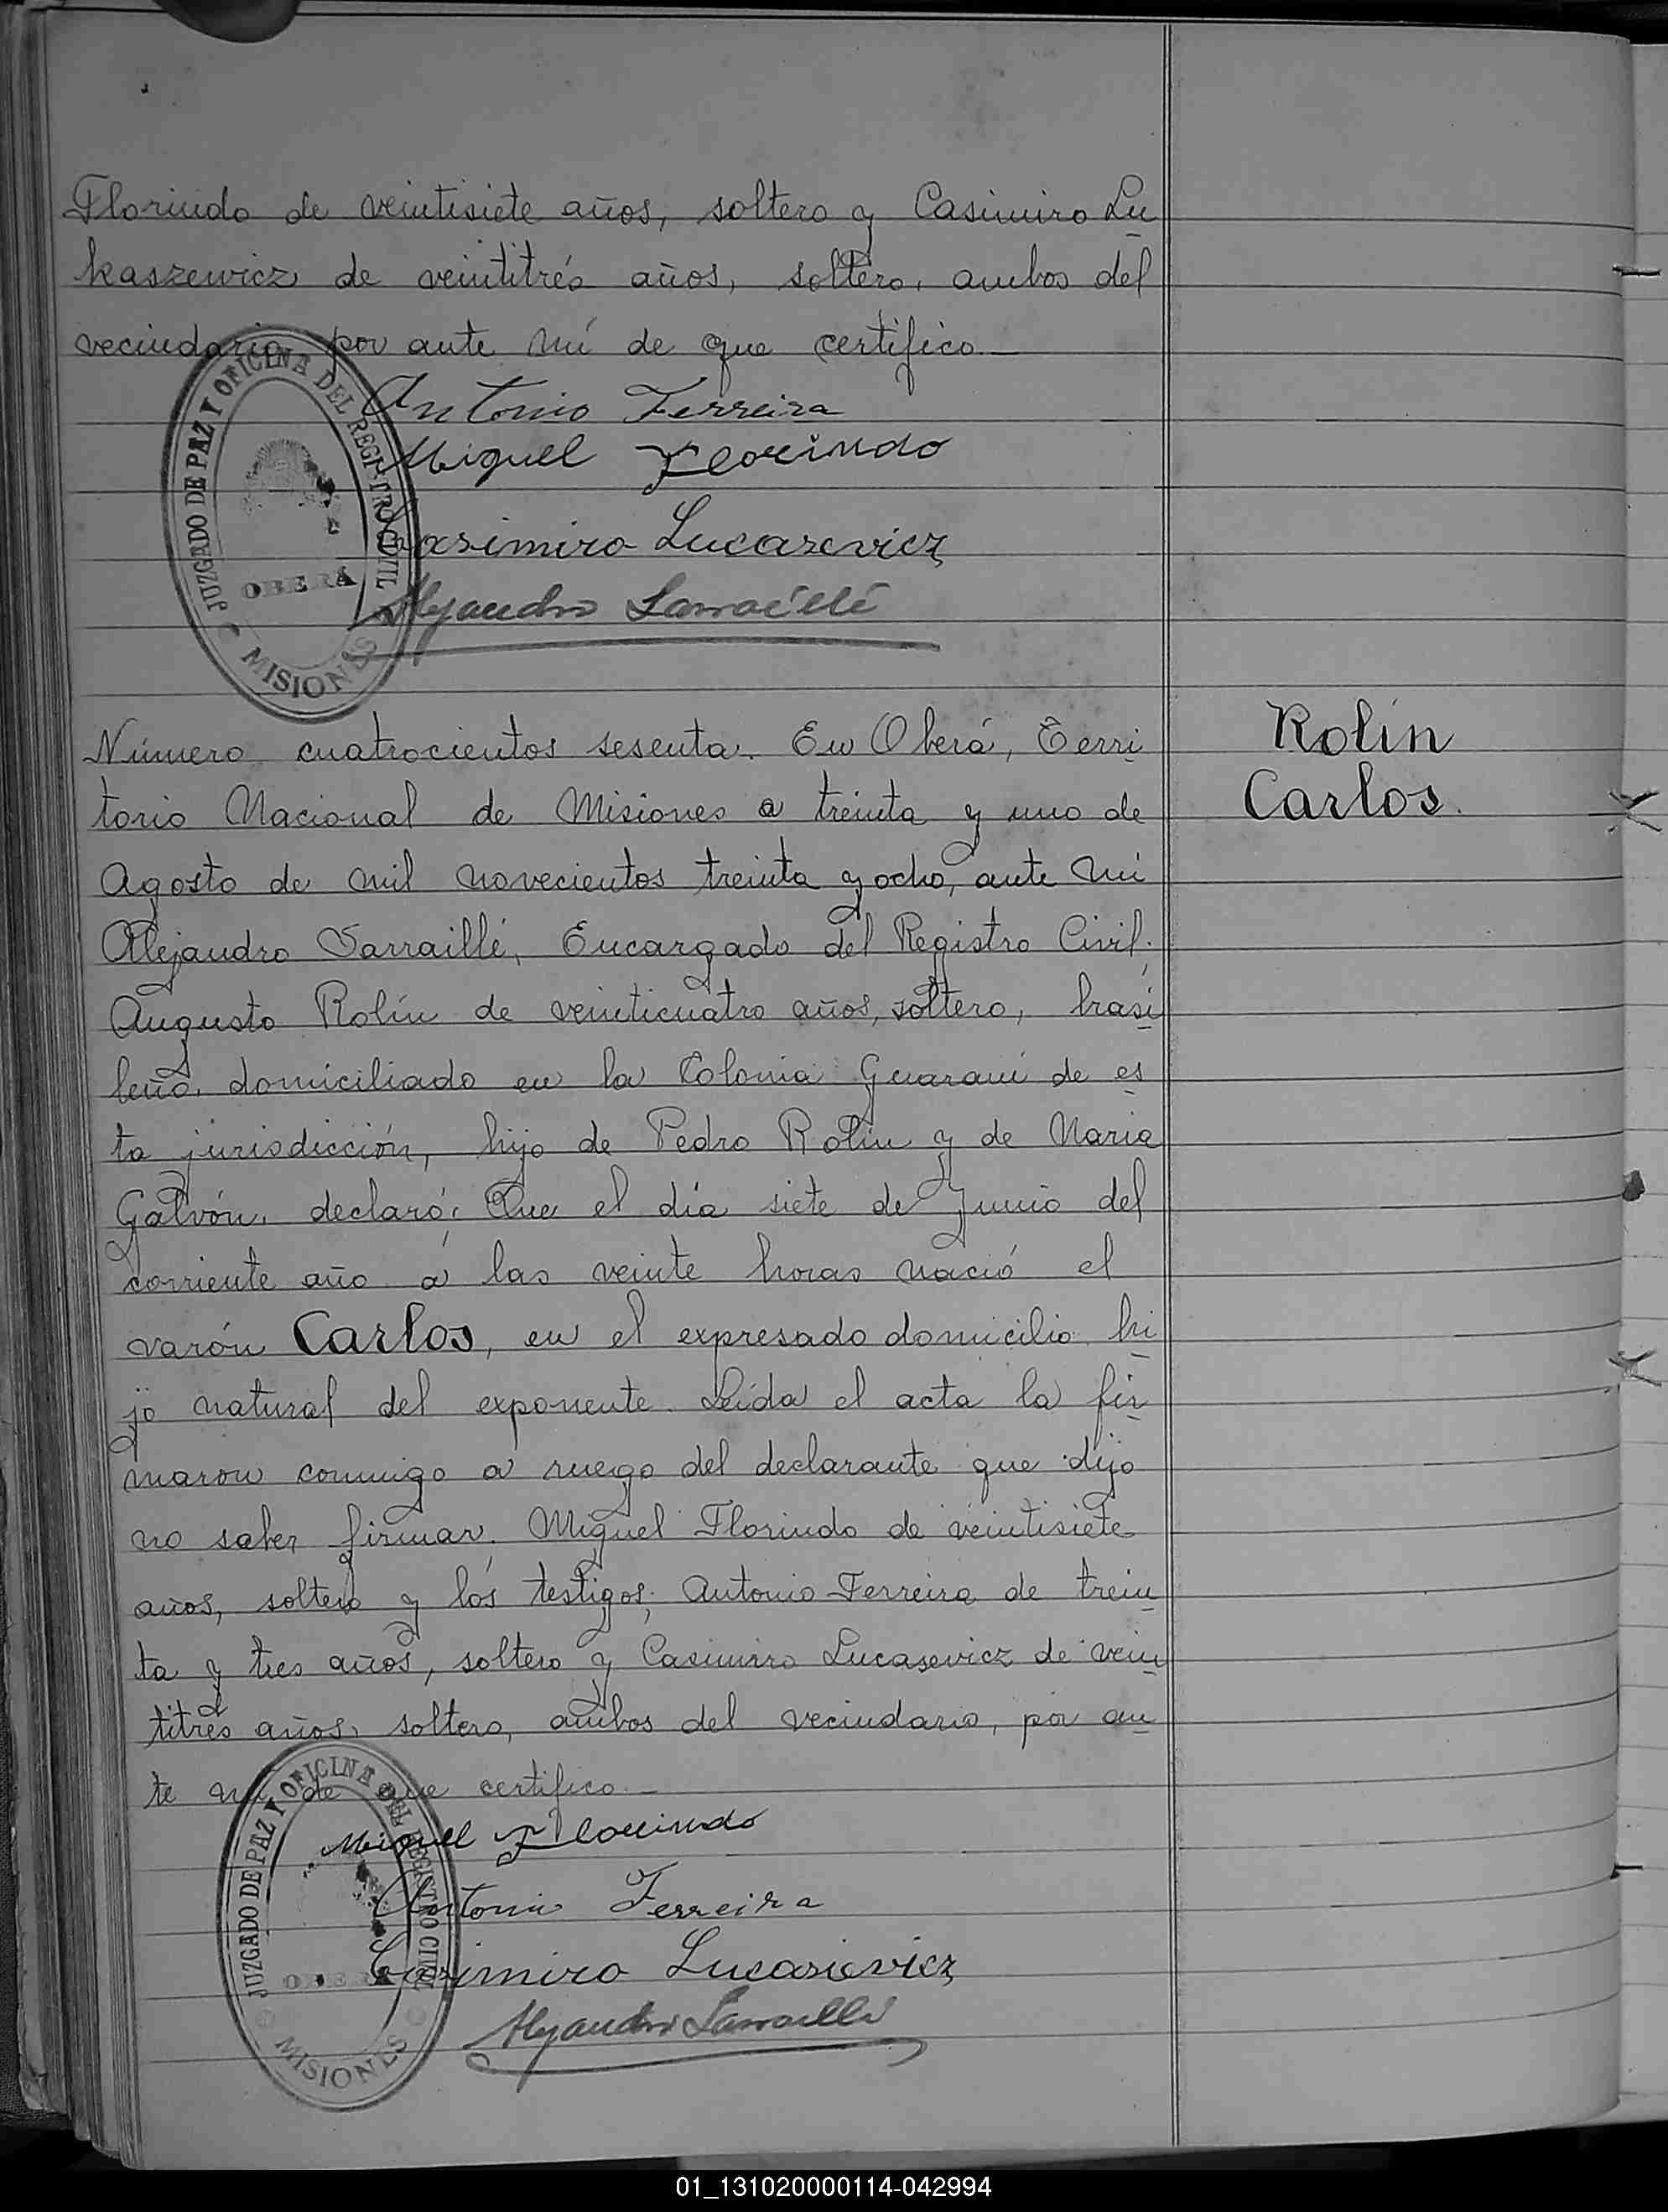 Florindo de veintisiete años, soltero y Casimiro Lu
kaszewicz de veintitrés años, soltero, ambos del
vecindario por ante mí de que certifico.—
Antonio Ferreira
Miguel Florindo
Casimiro Lucazevicz
Alejandro Sarraillé
JUZGADO DE PAZ Y OFICINA DEL REGISTRO CIVIL
OBERÁ
MISIONES
Rolín
Carlos.
Número cuatrocientos sesenta. En Oberá, Terri
torio Nacional de Misiones a treinta y uno de
Agosto de mil novecientos treinta y ocho, ante mí
Alejandro Sarraillé, Encargado del Registro Civil.
Augusto Rolín de veinticuatro años, soltero, brasi
leño, domiciliado en la Colonia Guaraní de es
ta jurisdicción, hijo de Pedro Rolín y de Maria
Galvón, declaró: Que el día siete de Junio del
corriente año a las veinte horas nació el
varón Carlos, en el expresado domicilio hi
jo natural del exponente. Leída el acta la fir
maron conmigo a ruego del declarante que dijo
no saber firmar. Miguel Florindo de veintisiete
años, soltero y los testigos; Antonio Ferreira de trein
ta y tres años, soltero y Casimiro Lucasevicz de vein
titrés años, soltero, ambos del vecindario, por an
te mí de que certifico.—
Miguel Florindo
Antonio Ferreira
Casimiro Lucasievicz
Alejandro Sarraillé
JUZGADO DE PAZ Y OFICINA DEL REGISTRO CIVIL
OBERÁ
MISIONES
01_131020000114-042994